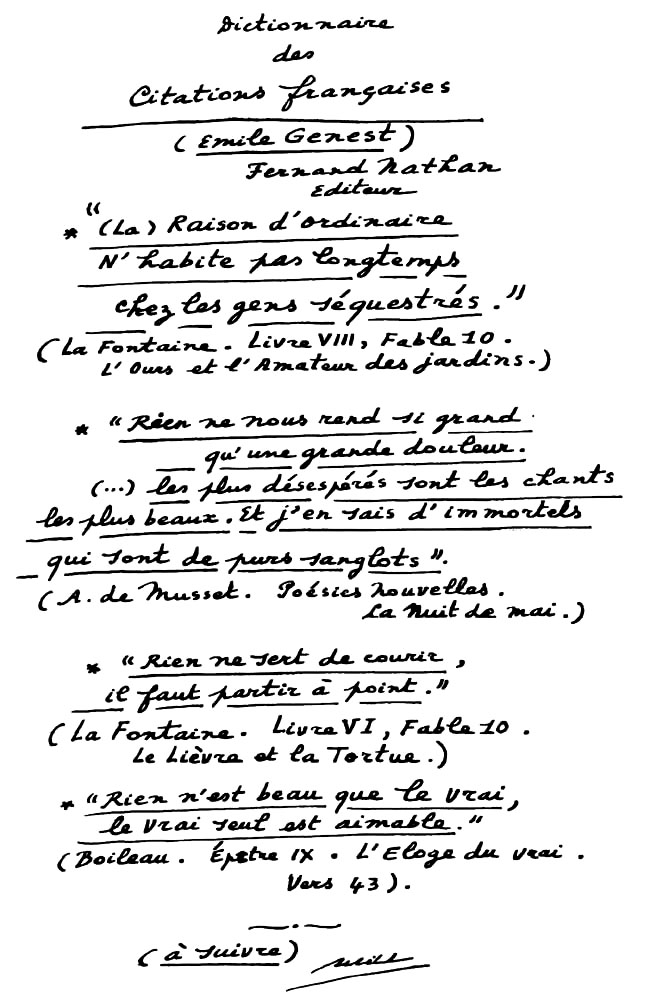 Dictionnaire
des
Citations françaises
(Emile Genest)
Fernand Nathan
Editeur
* "(La) Raison d'ordinaire
N'habite pas longtemps
chez les gens séquestrés."
(La Fontaine. Livre VIII, Fable 10.
L'Ours et l'Amateur des jardins.)
* "Rien ne nous rend si grand
qu'une grande douleur.
(...) les plus désespérés sont les chants
les plus beaux. Et j'en sais d'immortels
qui sont de purs sanglots".
(A. de Musset. Poésies nouvelles.
La Nuit de mai.)
* "Rien ne sert de courir,
il faut partir à point."
(La Fontaine. Livre VI, Fable 10.
Le Lièvre et la Tortue.)
* "Rien n'est beau que le vrai,
le vrai seul est aimable."
(Boileau. Épître IX. L'Eloge du vrai.
Vers 43).
(à suivre)